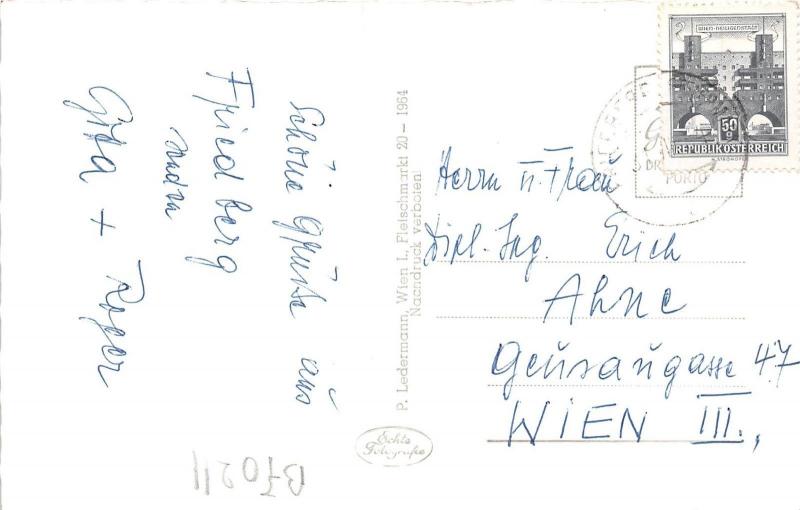 Schöne Grüße aus
Friedberg
Gita + Roger
P. Ledermann, Wien I., Fleischmarkt 20 – 1964
Nachdruck verboten!
Echte
Fotografie
WIEN-HEILIGENSTADT
50
g
REPUBLIK ÖSTERREICH
PORTO
Herrn u. Frau
Dipl. Ing. Erich
Ahne
Geusaugasse 47
WIEN III.,